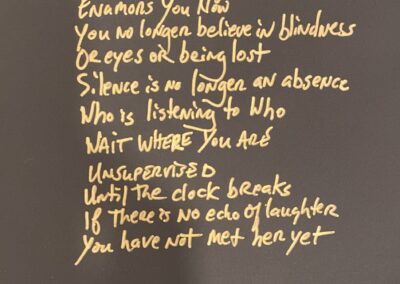 ENAMORS YOU NOW
You no longer believe in blindness
Or eyes or being lost
Silence is no longer an absence
Who is listening to Who
WAIT WHERE YOU ARE
UNSUPERVISED
Until The clock breaks
If There is No echo of laughter
You have not met her yet